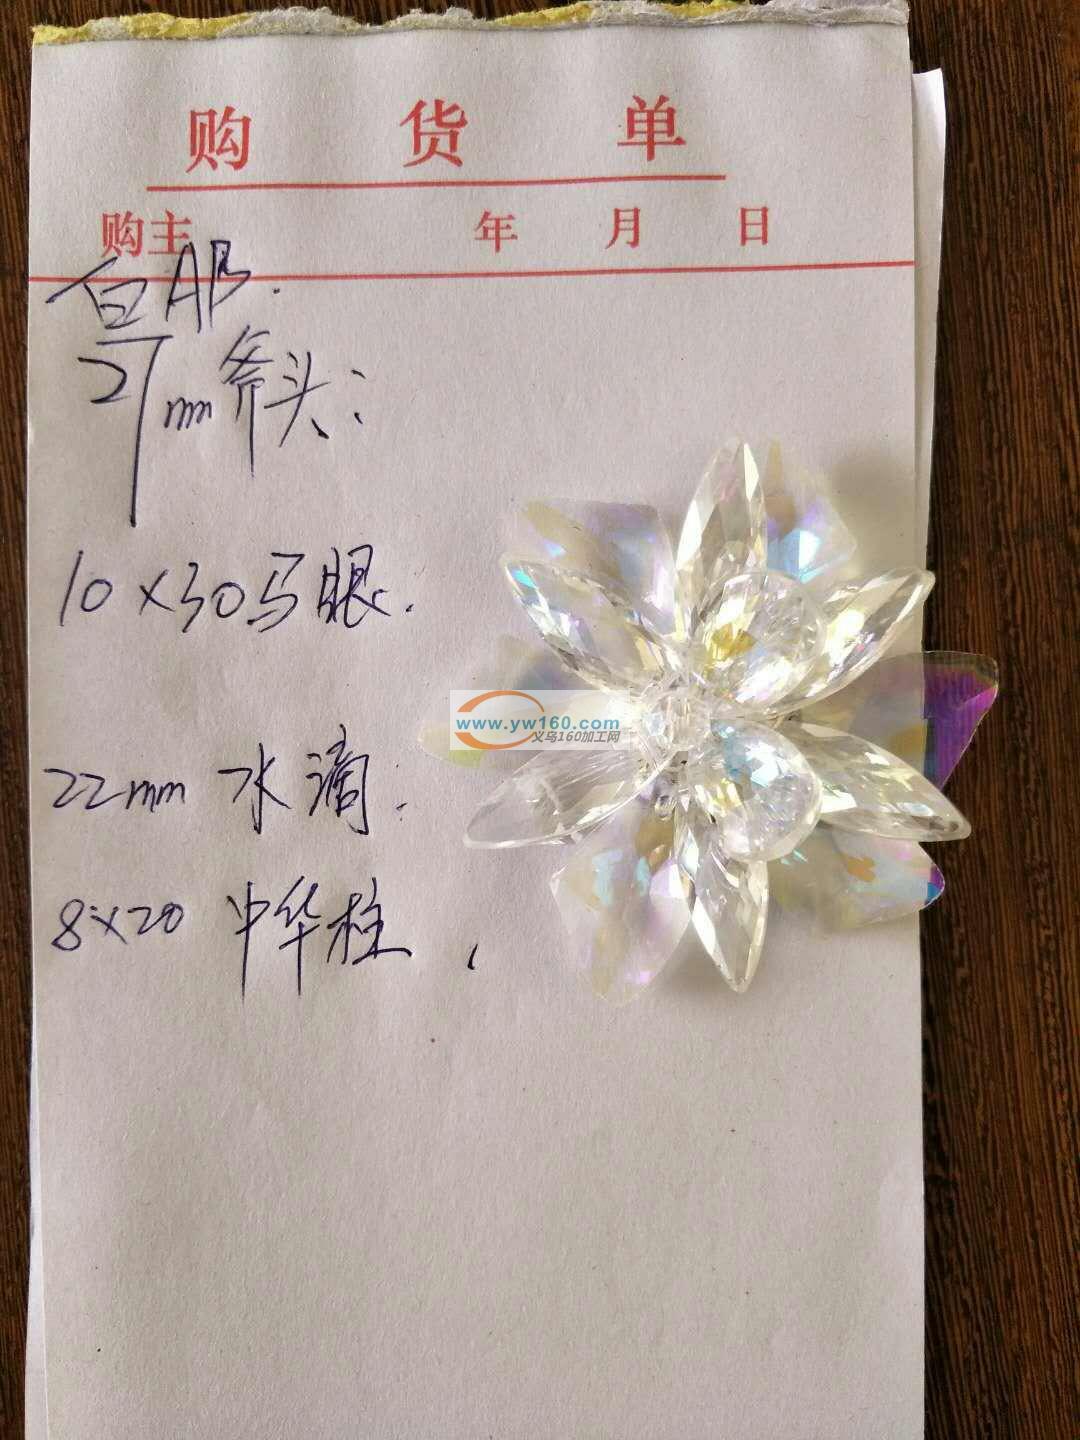 购货单
购主 年 月 日
白AB.
27mm斧头:
10×30马眼.
www.yw160.com
义乌160加工网
22mm 水滴.
8×20 中华柱,